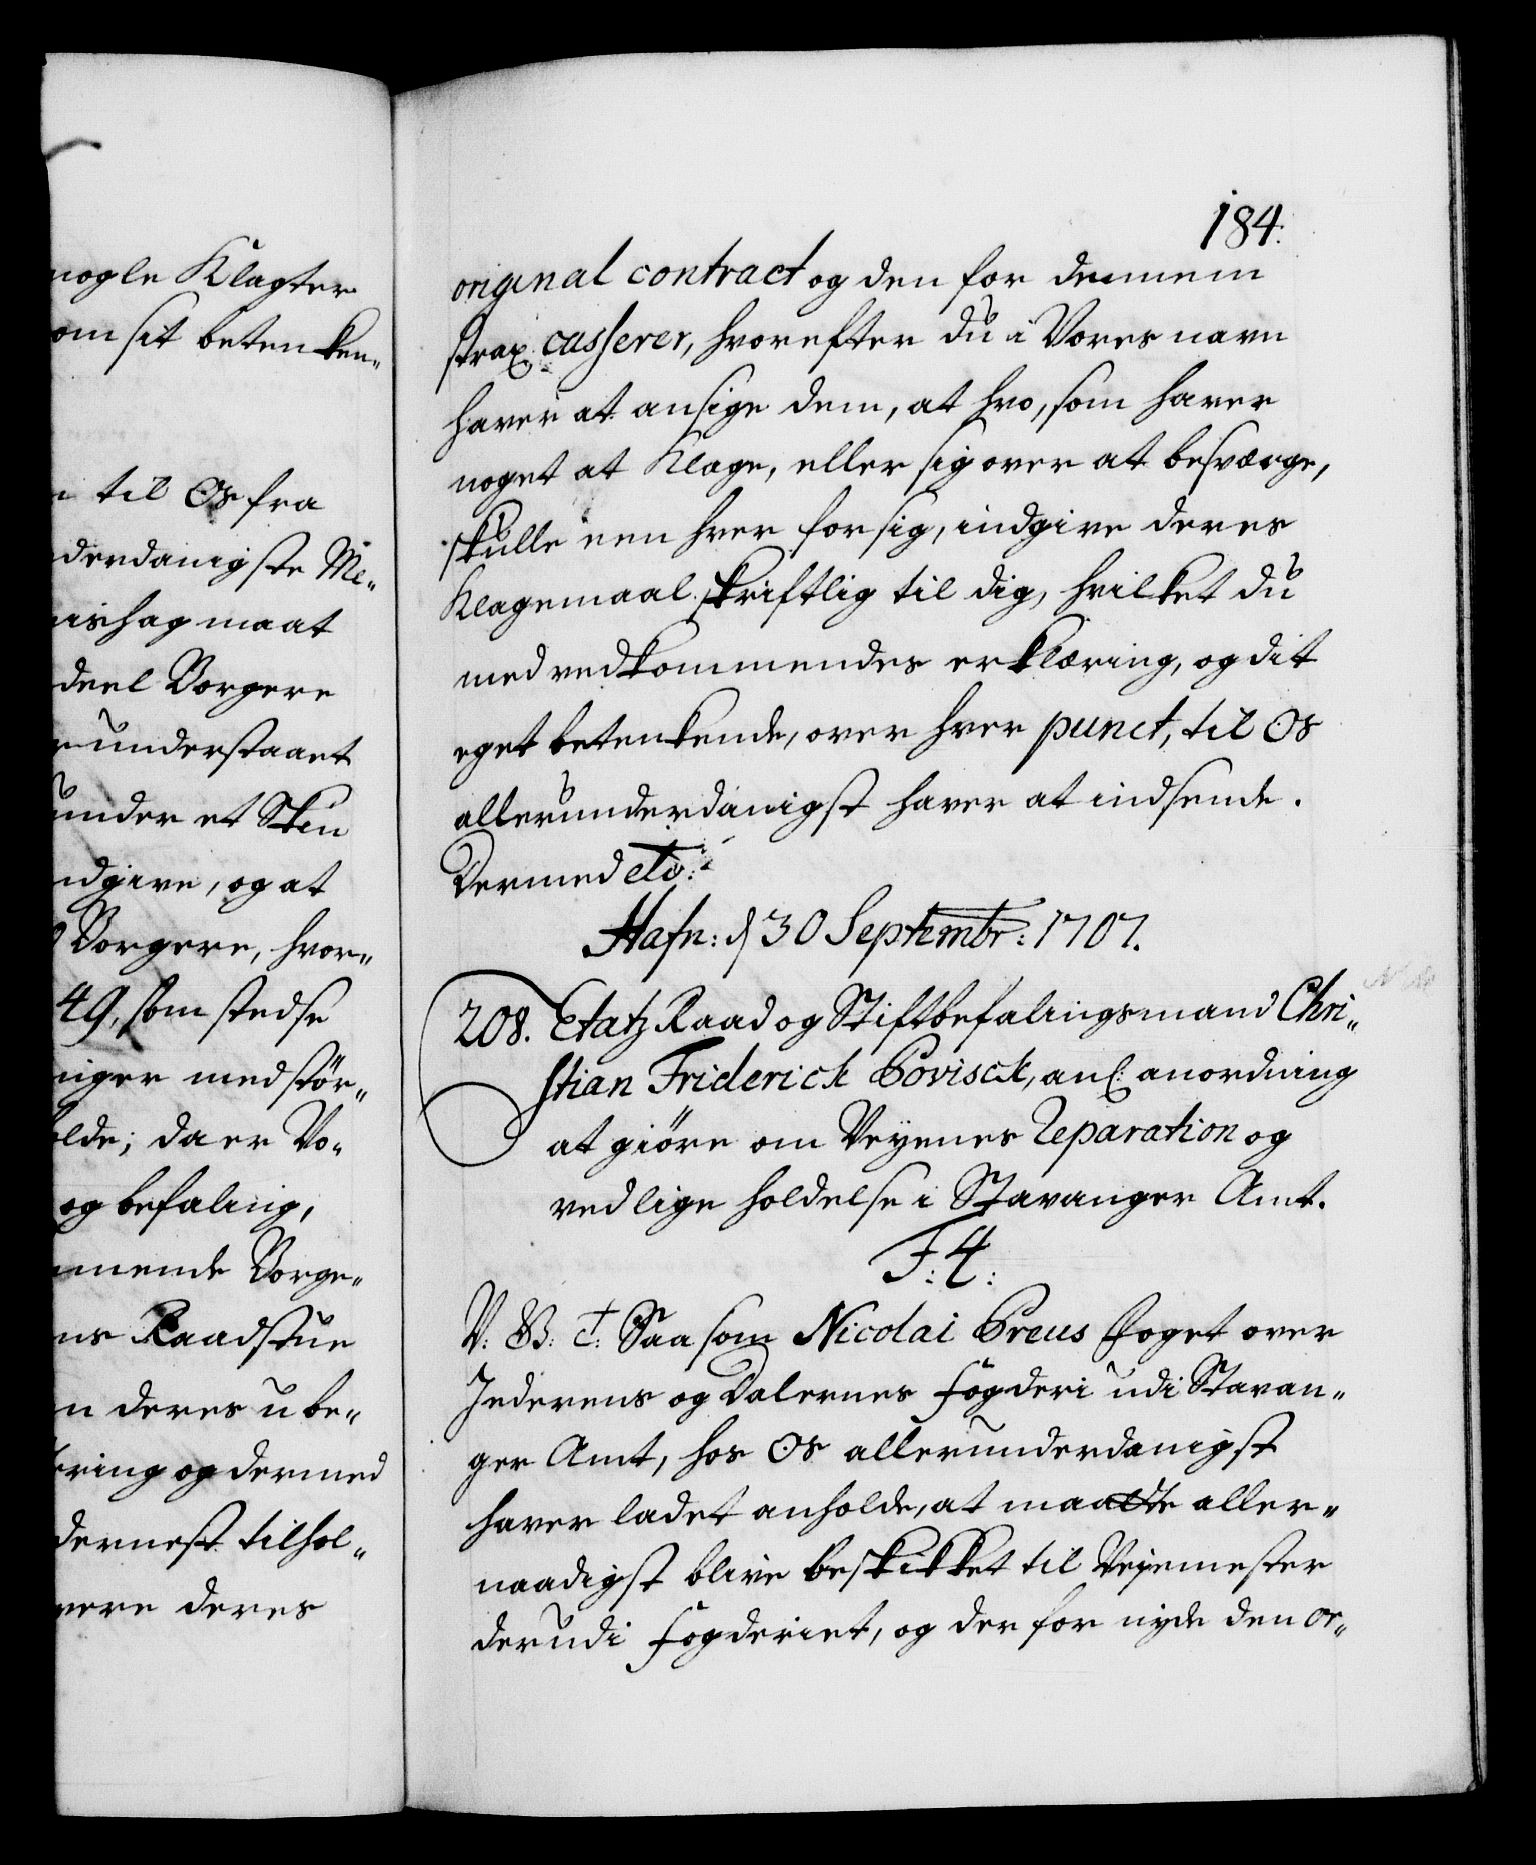 nogle Klagter
om sit betenken„
til Os fra
derdanigste Me„
ishag maat
deel Borgere
understaaet
under et Skin
dgive, og at
Borgere, hvor„
49, som stedse
niger med stør„
olde; da er Vo„
og befaling,
mende Borge„
ns Raadstue
n deres u be„
ring og dermed
dernest tilhol„
vere deres
184.
original contract og den for dennem
strax casserer, hvorefter du i Vores navn
haver at ansige dem, at hvo, som haver
noget at Klage, eller sig over at besværge,
skulle een hver for sig, indgive deres
Klagemaal skriftlig til dig, hvilket du
med vedkommendes erklæring, og dit
eget betenkende, over hver punct, til Os
allerunderdanigst haver at indsende.
Dermed etc:
Hafn: d 30 Septembr: 1707.
208. Etatz Raad og Stiftbefalingsmand Chri„
stian Friderich Povisch, anl: anordning
at giöre om Veyenes Reparation og
vedlige holdelse i Stavanger Amt.
F: 4:
V: G: T: Saa som Nicolai Preus foget over
Jederens og Dalernes fogderi udi Stavan„
ger Amt, hos Os allerunderdanigst
haver ladet anholde, at maatte aller„
naadigst blive beskikket til Vejemester
derudi fogderiet, og der for nyde den or„